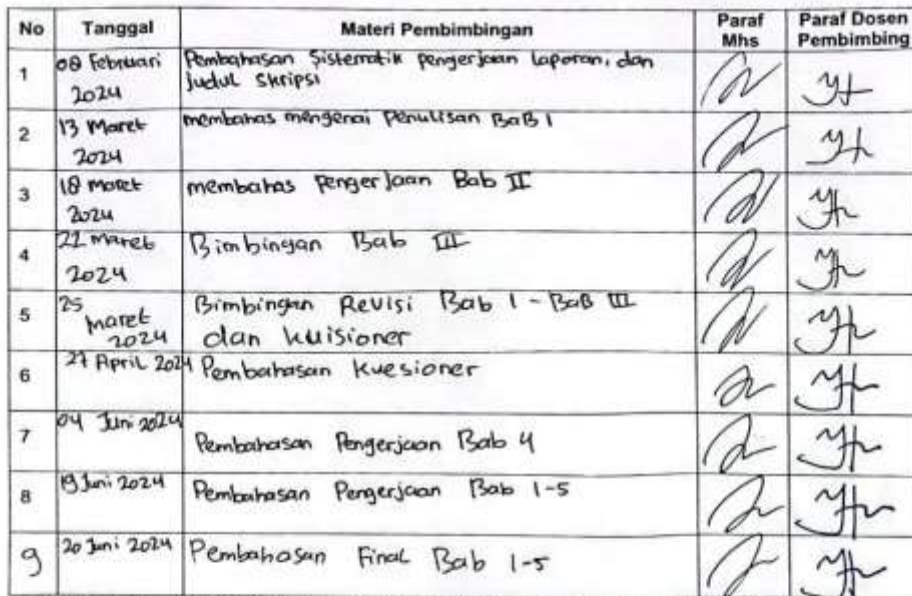 No Tanggal Materi Pembimbingan Paraf Mhs Paraf Dosen Pembimbing
1 08 Februari 2024 Pembahasan Sistematik pengerjaan laporan, dan
judul skripsi
2 13 Maret 2024 membahas mengenai Penulisan BaB 1
3 18 maret 2024 membahas Pengerjaan Bab II
4 22 maret 2024 Bimbingan Bab III
5 25 maret 2024 Bimbingan Revisi Bab 1 - BaB III
dan kuisioner
6 27 April 2024 Pembahasan kuesioner
7 04 Juni 2024 Pembahasan Pengerjaan Bab 4
8 19 Juni 2024 Pembahasan Pengerjaan Bab 1-5
9 20 Juni 2024 Pembahasan Final Bab 1-5